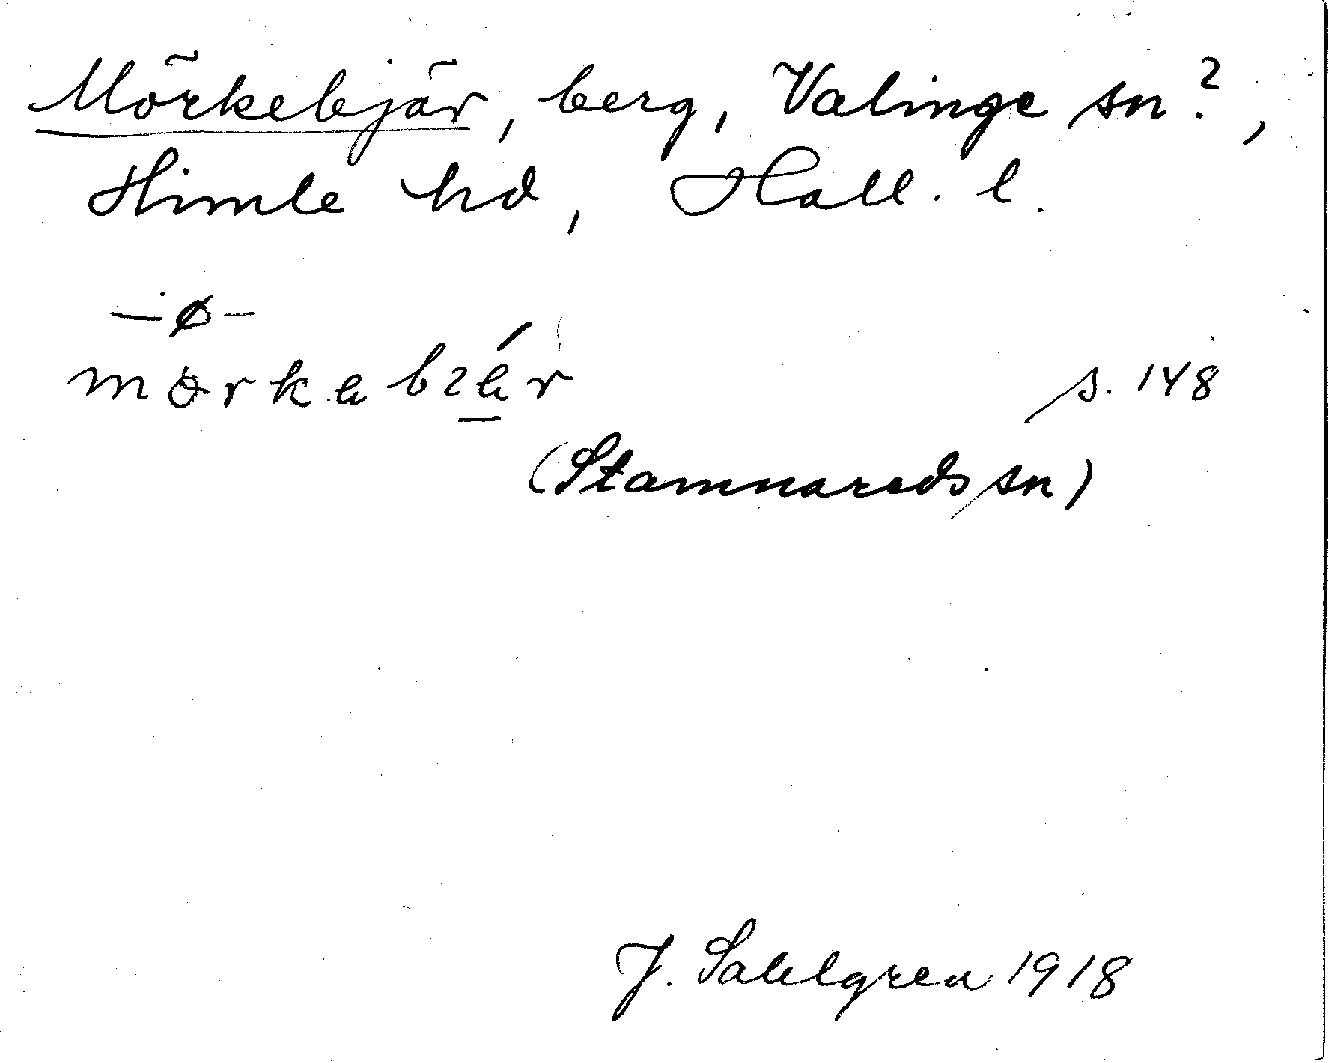 Mörkebjär, berg, Valinge sn?,
Himle hd, Hall. l.
–ø–
s. 148
(Stamnareds sn)
J. Sahlgren 1918